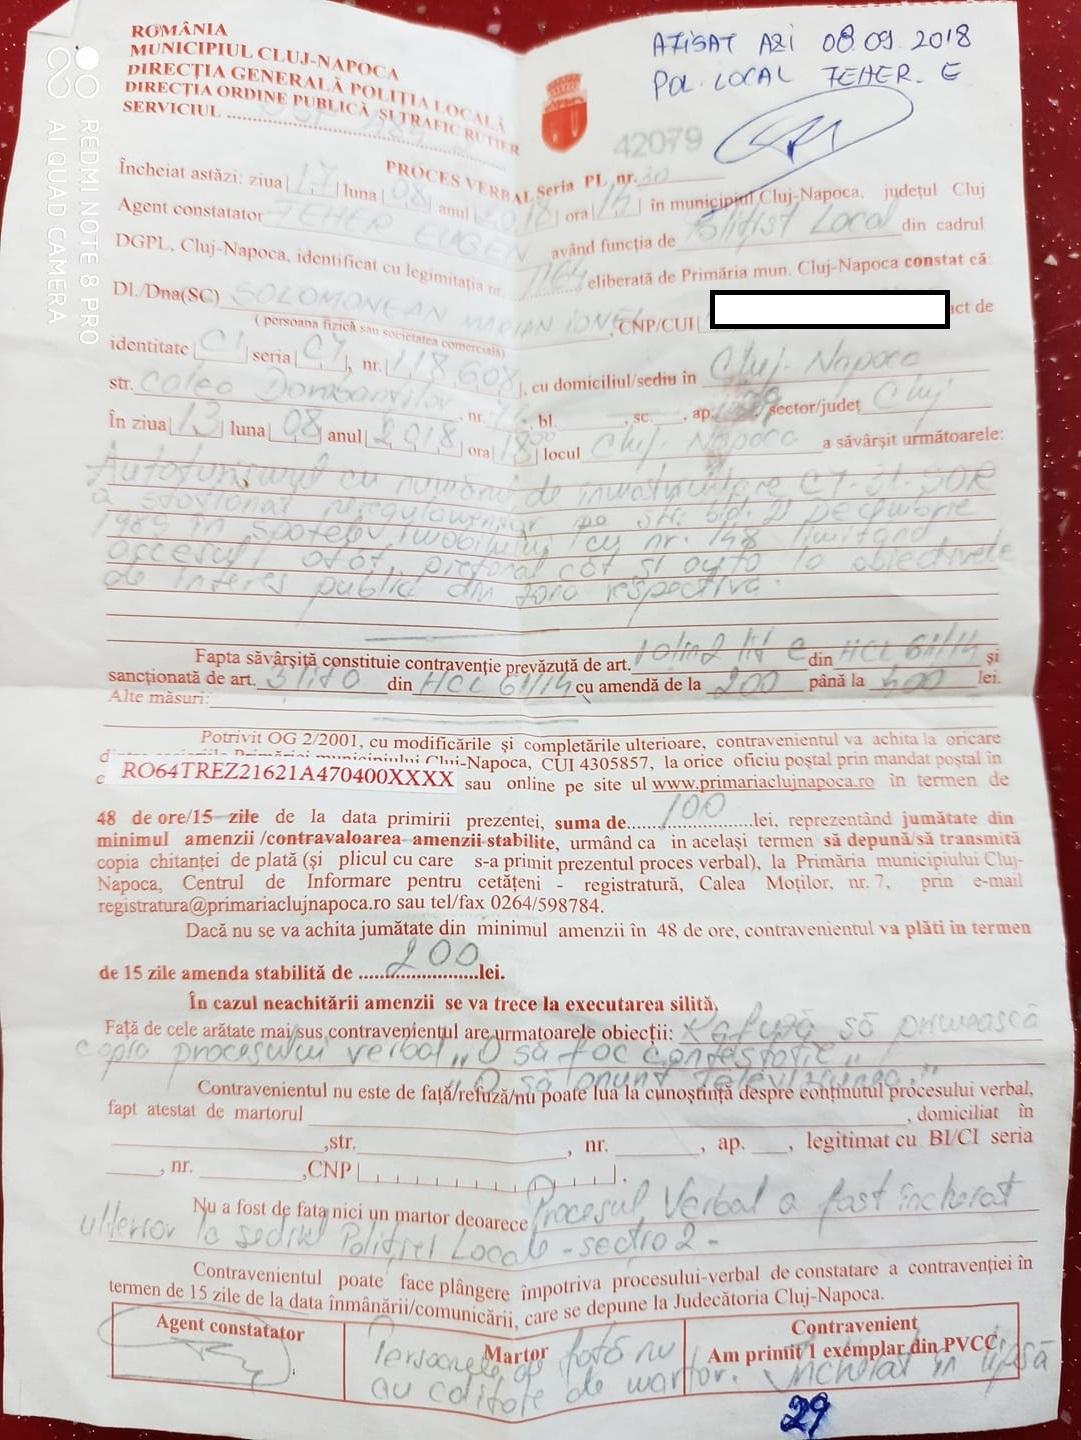 ROMÂNIA
MUNICIPIUL CLUJ-NAPOCA
DIRECȚIA GENERALĂ POLIȚIA LOCALĂ
DIRECȚIA ORDINE PUBLICĂ ȘI TRAFIC RUTIER
SERVICIUL
AFISAT AZI 08 09 2018
POL. LOCAL FEHER E
42079
PROCES VERBAL Seria PL nr. 30
Încheiat astăzi: ziua 17 luna 08 anul 2018 ora în municipiul Cluj-Napoca, județul Cluj
Agent constatator FEHER EUGEN având funcția de Polițist Local din cadrul
DGPL, Cluj-Napoca, identificat cu legitimația nr. 1164 eliberată de Primăria mun. Cluj-Napoca constat că:
Dl./Dna(SC) SOLOMONEAN MARIAN IONEL CNP/CUI act de
( persoana fizică sau societatea comercială)
identitate CI seria CJ, nr. 118.608, cu domiciliul/sediu în Cluj-Napoca
str. Calea Dorobanților, nr. , bl. , sc. , ap. sector/județ Cluj
În ziua 13 luna 08 anul 2018 ora 18 locul Cluj-Napoca a săvârșit următoarele:
Autoturismul cu număru de înmatriculare CJ-31-SOR
a staționat neregulamentar pe str. bld. 21 Decembrie
1989 în spatele imobilului cu nr. 148 limitând
accesul atât pietonal cât și auto la obiectivele
de interes public din zona respectivă.
Fapta săvârșită constituie contravenție prevăzută de art. 1 alin 2 lit e din HCL 61/14 și
sancționată de art. 3 lit a din HCL 61/14 cu amendă de la 200 până la 400 lei.
Alte măsuri:
Potrivit OG 2/2001, cu modificările și completările ulterioare, contravenientul va achita la oricare
municipiului Cluj-Napoca, CUI 4305857, la orice oficiu poștal prin mandat poștal în
c RO64TREZ21621A470400XXXX sau online pe site ul www.primariaclujnapoca.ro în termen de
48 de ore/15 zile de la data primirii prezentei, suma de 100 lei, reprezentând jumătate din
minimul amenzii /contravaloarea amenzii stabilite, urmând ca in același termen să depună/să transmită
copia chitanței de plată (și plicul cu care s-a primit prezentul proces verbal), la Primăria municipiului Cluj-
Napoca, Centrul de Informare pentru cetățeni - registratură, Calea Moților, nr. 7, prin e-mail
registratura@primariaclujnapoca.ro sau tel/fax 0264/598784.
Dacă nu se va achita jumătate din minimul amenzii în 48 de ore, contravenientul va plăti in termen
de 15 zile amenda stabilită de 200 lei.
În cazul neachitării amenzii se va trece la executarea silită,
Față de cele arătate mai sus contravenientul are urmatoarele obiecții: Refuză să primească
copia procesului verbal „O să fac contestație"
„O să anunț televiziunea."
Contravenientul nu este de față/refuză/nu poate lua la cunoștință despre conținutul procesului verbal,
fapt atestat de martorul , domiciliat în
,str. , nr. , ap. , legitimat cu BI/CI seria
, nr. ,CNP
Nu a fost de fata nici un martor deoarece Procesul Verbal a fost încheiat
ulterior la sediul Poliției Locale - secția 2 -
Contravenientul poate face plângere împotriva procesului-verbal de constatare a contravenției în
termen de 15 zile de la data înmânării/comunicării, care se depune la Judecătoria Cluj-Napoca.
Agent constatator
Martor
Persoanele de față nu
au calitate de martor.
Contravenient
Am primtit 1 exemplar din PVCC
Încheiat în lipsă
29
REDMI NOTE 8 PRO
AI QUAD CAMERA